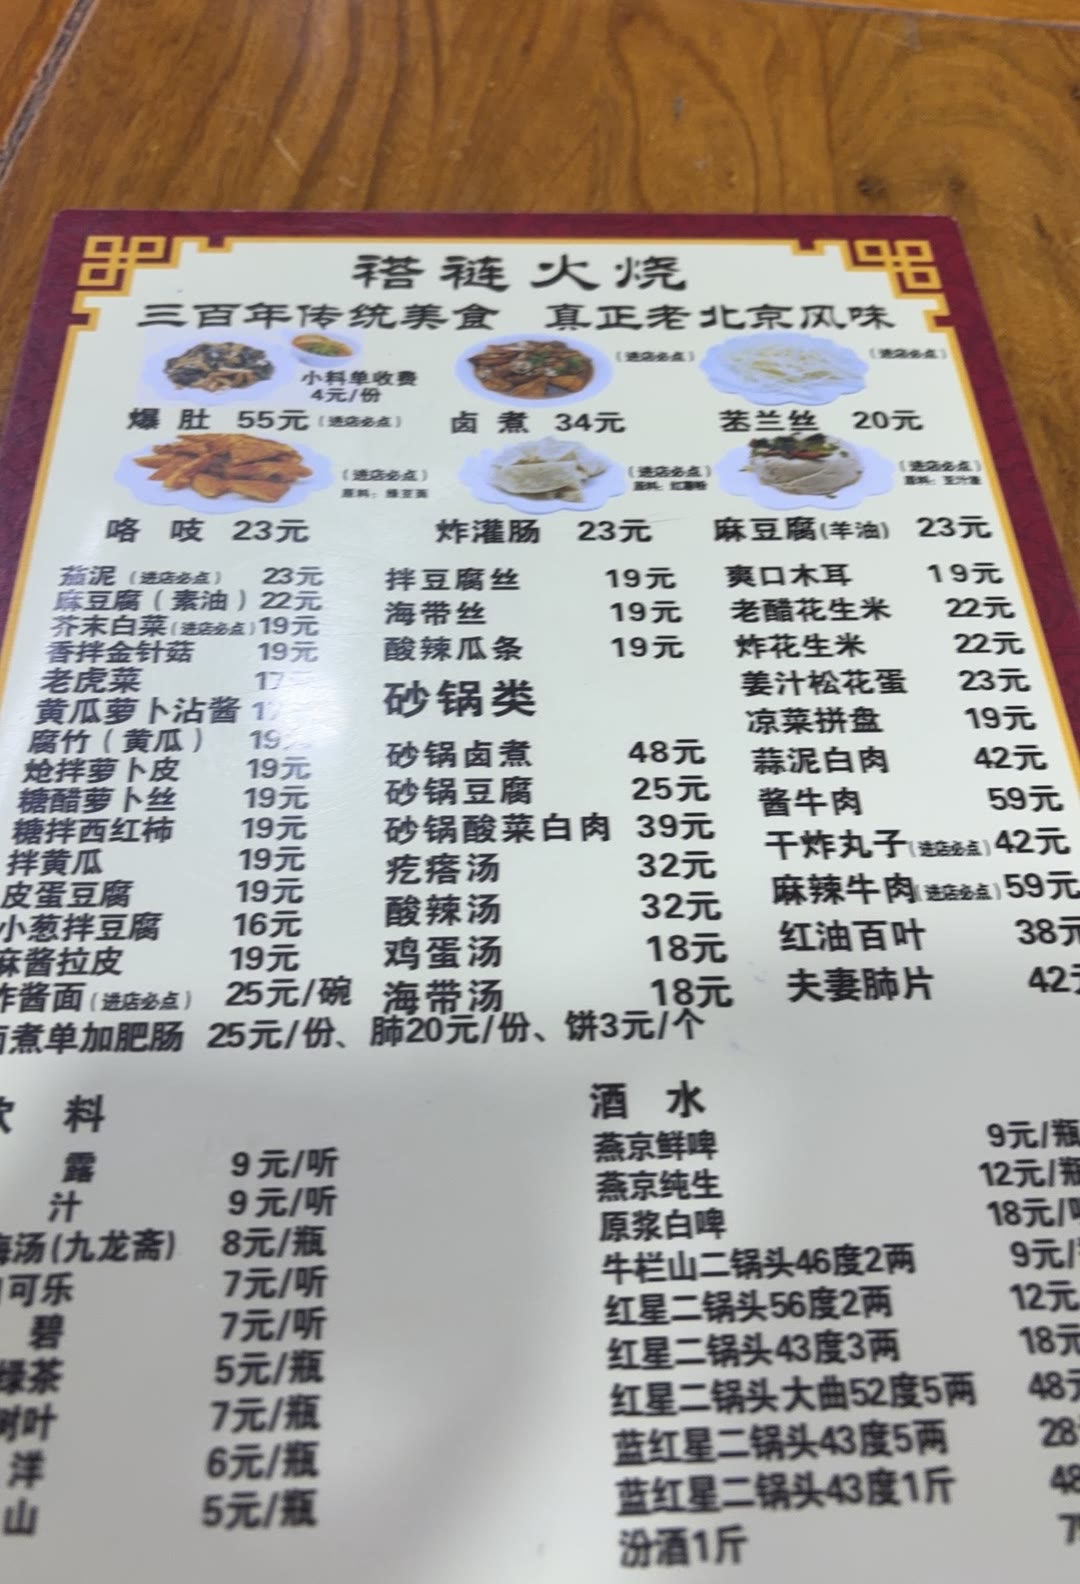 褡裢火烧
三百年传统美食 真正老北京风味
小料单收费
4元/份
(进店必点)
(进店必点)
爆肚 55元(进店必点)
卤煮 34元
苤兰丝 20元
(进店必点)
原料:绿豆面
(进店必点)
原料:红薯粉
(进店必点)
原料:豆汁渣
咯吱 23元
炸灌肠 23元
麻豆腐(羊油) 23元
茄泥(进店必点) 23元
麻豆腐(素油) 22元
芥末白菜(进店必点) 19元
香拌金针菇 19元
老虎菜 17
黄瓜萝卜沾酱
腐竹(黄瓜) 19元
炝拌萝卜皮 19元
糖醋萝卜丝 19元
糖拌西红柿 19元
拌黄瓜 19元
皮蛋豆腐 19元
小葱拌豆腐 16元
麻酱拉皮 19元
炸酱面(进店必点) 25元/碗
拌豆腐丝 19元
海带丝 19元
酸辣瓜条 19元
砂锅类
砂锅卤煮 48元
砂锅豆腐 25元
砂锅酸菜白肉 39元
疙瘩汤 32元
酸辣汤 32元
鸡蛋汤 18元
海带汤 18元
爽口木耳 19元
老醋花生米 22元
炸花生米 22元
姜汁松花蛋 23元
凉菜拼盘 19元
蒜泥白肉 42元
酱牛肉 59元
干炸丸子(进店必点) 42元
麻辣牛肉(进店必点) 59元
红油百叶 38元
夫妻肺片 42元
卤煮单加肥肠 25元/份、肺20元/份、饼3元/个
饮料
露 9元/听
汁 9元/听
梅汤(九龙斋) 8元/瓶
可乐 7元/听
碧 7元/听
绿茶 5元/瓶
树叶 7元/瓶
洋 6元/瓶
山 5元/瓶
酒水
燕京鲜啤 9元/瓶
燕京纯生 12元/瓶
原浆白啤 18元/听
牛栏山二锅头46度2两 9元/
红星二锅头56度2两 12元
红星二锅头43度3两 18元
红星二锅头大曲52度5两 48元
蓝红星二锅头43度5两 28
蓝红星二锅头43度1斤 48
汾酒1斤